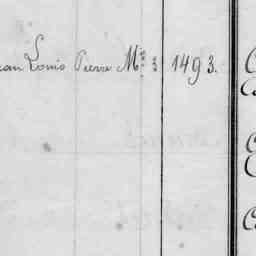 ean Louis Pierre Mre 3 1493.